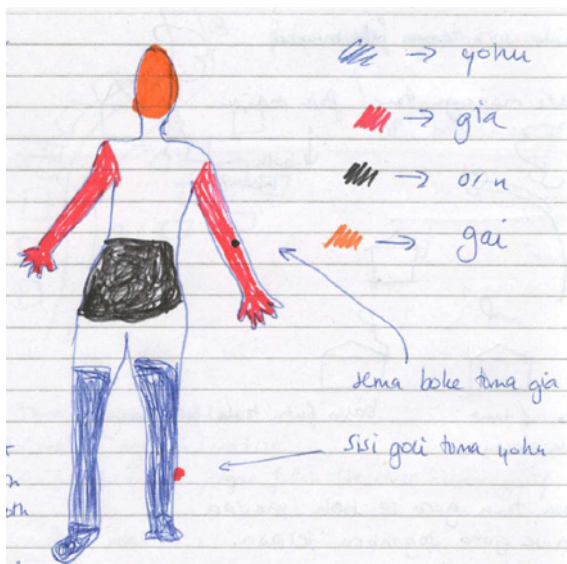 → yohu
→ gia
→
→ gai
sema boke tuma gia
sisi goli tuma yohu